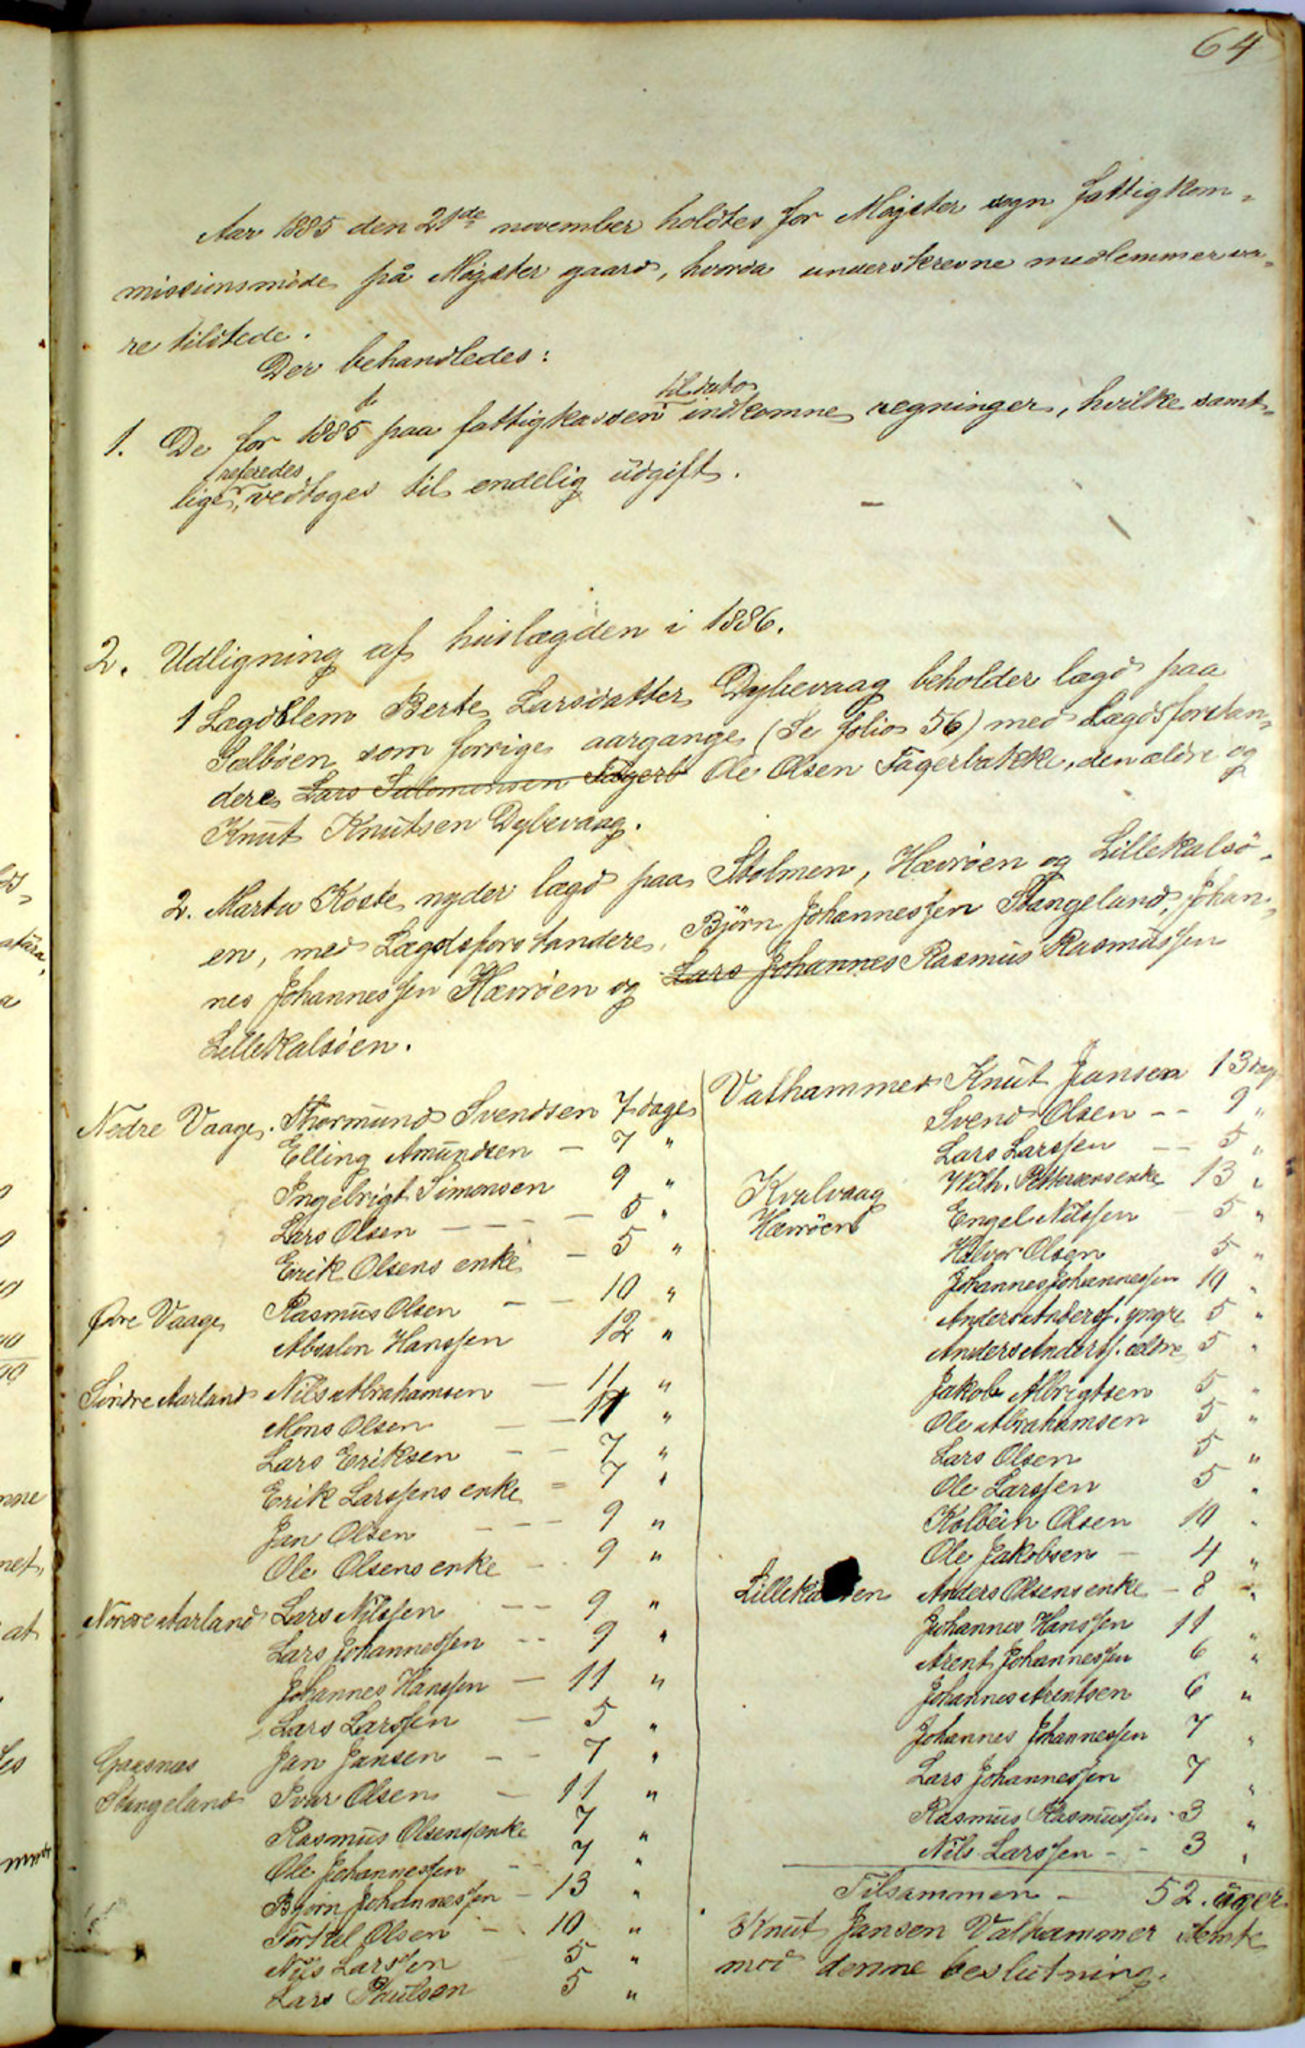 64
Aar 1885 den 21de november holdtes for Møgster sogn fattigkom-
missionsmøde på Møgster gaard, hvorda underskrevne medlemmer va-
re tilstede.
Der behandledes:
1. De for 1885 paa fattigkassen til dato indkomne regninger, hvilke samt-
lige, referedes vedtoges til endelig üdgift.
2. Udligning af hüslægden i 1886.
1 Lægdslem Berte Larsdatter Dybevaag beholder lægd paa
Selbøen som forrige aargange (Se folio 56) med Lægdsforstan-
dere Lars Salomonsen Fagerb Ole Olsen Fagerbakke, den ældre og
Knüt Knütsen Dybevaag.
2. Marta Koste nyder lægd paa Stolmen, Hævrøen og Lillekalsø-
en, med Lægdsforstandere, Björn Johannessen Stangeland, Johan-
nes Johannessen Hævrøen og Lars Johannes Rasmüs Rasmüssen
Lillekalsøen.
Nedre Vaage. Thormünd Svendsen 7 dage
Elling Amündsen – 7 "
Ingebrigt Simonsen 9 "
Lars Olsen – – – 5 "
Erik Olsens enke – 5 "
Øvre Vaage Rasmüs Olsen – – 10 "
Absalon Hanssen 12 "
Söndre Aarland Nils Abrahamsen – 11 "
Mons Olsen – – 11 "
Lars Eriksen – – 7 "
Erik Larssens enke – 7 "
Jan Olsen – – – 9 "
Ole Olsens enke – 9 "
Nordre Aarland Lars Nilssen – – 9 "
Lars Johannessen – – 9 "
Johannes Hanssen – 11 "
Lars Larssen – 5 "
Gaasnæs Jan Jansen – – 7 "
Stangeland Ivar Olsen – 11 "
Rasmüs Olsens enke 7 "
Ole Johannessen – 7 "
Bjørn Johannessen – 13 "
Torkel Olsen – 10 "
Nils Larssen 5 "
Lars Paulsen 5 "
Valhammer Knüt Jansen 13 dag
Svend Olsen – – 9 "
Lars Larssen – – 5 "
Kvalvaag Wilh. Pettersens enke 13 "
Hævrøen Engel Nilssen – 5 "
Halvor Olsen 5 "
Johannes Johannessen 10 "
Anders Anderss. yngre 5 "
Anders Anderss. ældre 5 "
Jakob Albrigtsen 5 "
Ole Abrahamsen 5 "
Lars Olsen 5 "
Ole Larssen 5 "
Kolbein Olsen 10 "
Ole Jakobsen – 4 "
Lilleka en Anders Olsens enke – 8 "
Johannes Hanssen 11 "
Arent Johannessen 6 "
Johannes Arentsen 6 "
Johannes Johannessen 7 "
Lars Johannessen 7 "
Rasmüs Rasmüssen – 3 "
Nils Larssen – – 3 "
Tilsammen – 52. üger
Knüt Jansen Valhammer stemte
mod denne beslutning.